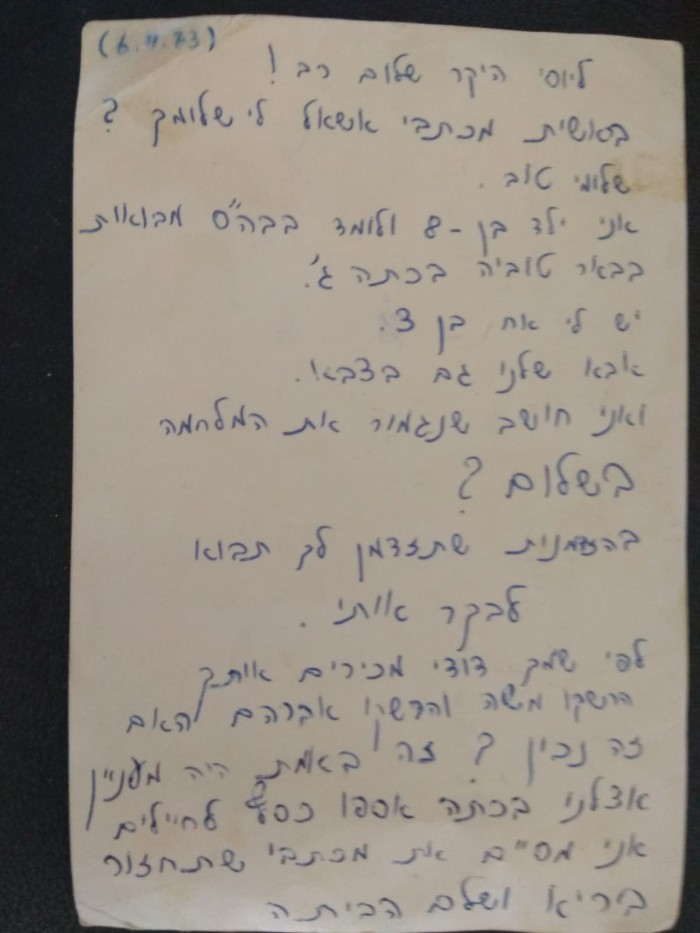 (6.11.73)
ליוסי היקר שלום רב!
בראשית מכתבי אשאל לי שלומך ?
שלומי טוב .
אני ילד בן - 8 ולומד בבה"ס מבואות
בבאר טוביה בכתה ג'.
יש לי אח בן 3.
אבא שלנו גם בצבא.
ואני חושב שנגמור את המלחמה
בשלום ?
בהזדמנות שתזדמן לך תבוא
לבקר אותי .
לפי שמך דודי מכירים אותך
הרשקו משה והרשקו אברהם האם
זה נכון ? זה באמת היה מעניין
אצלנו בכתה אספו כסף לחיילים
אני מסיים את מכתבי שתחזור
בריא ושלם הביתה